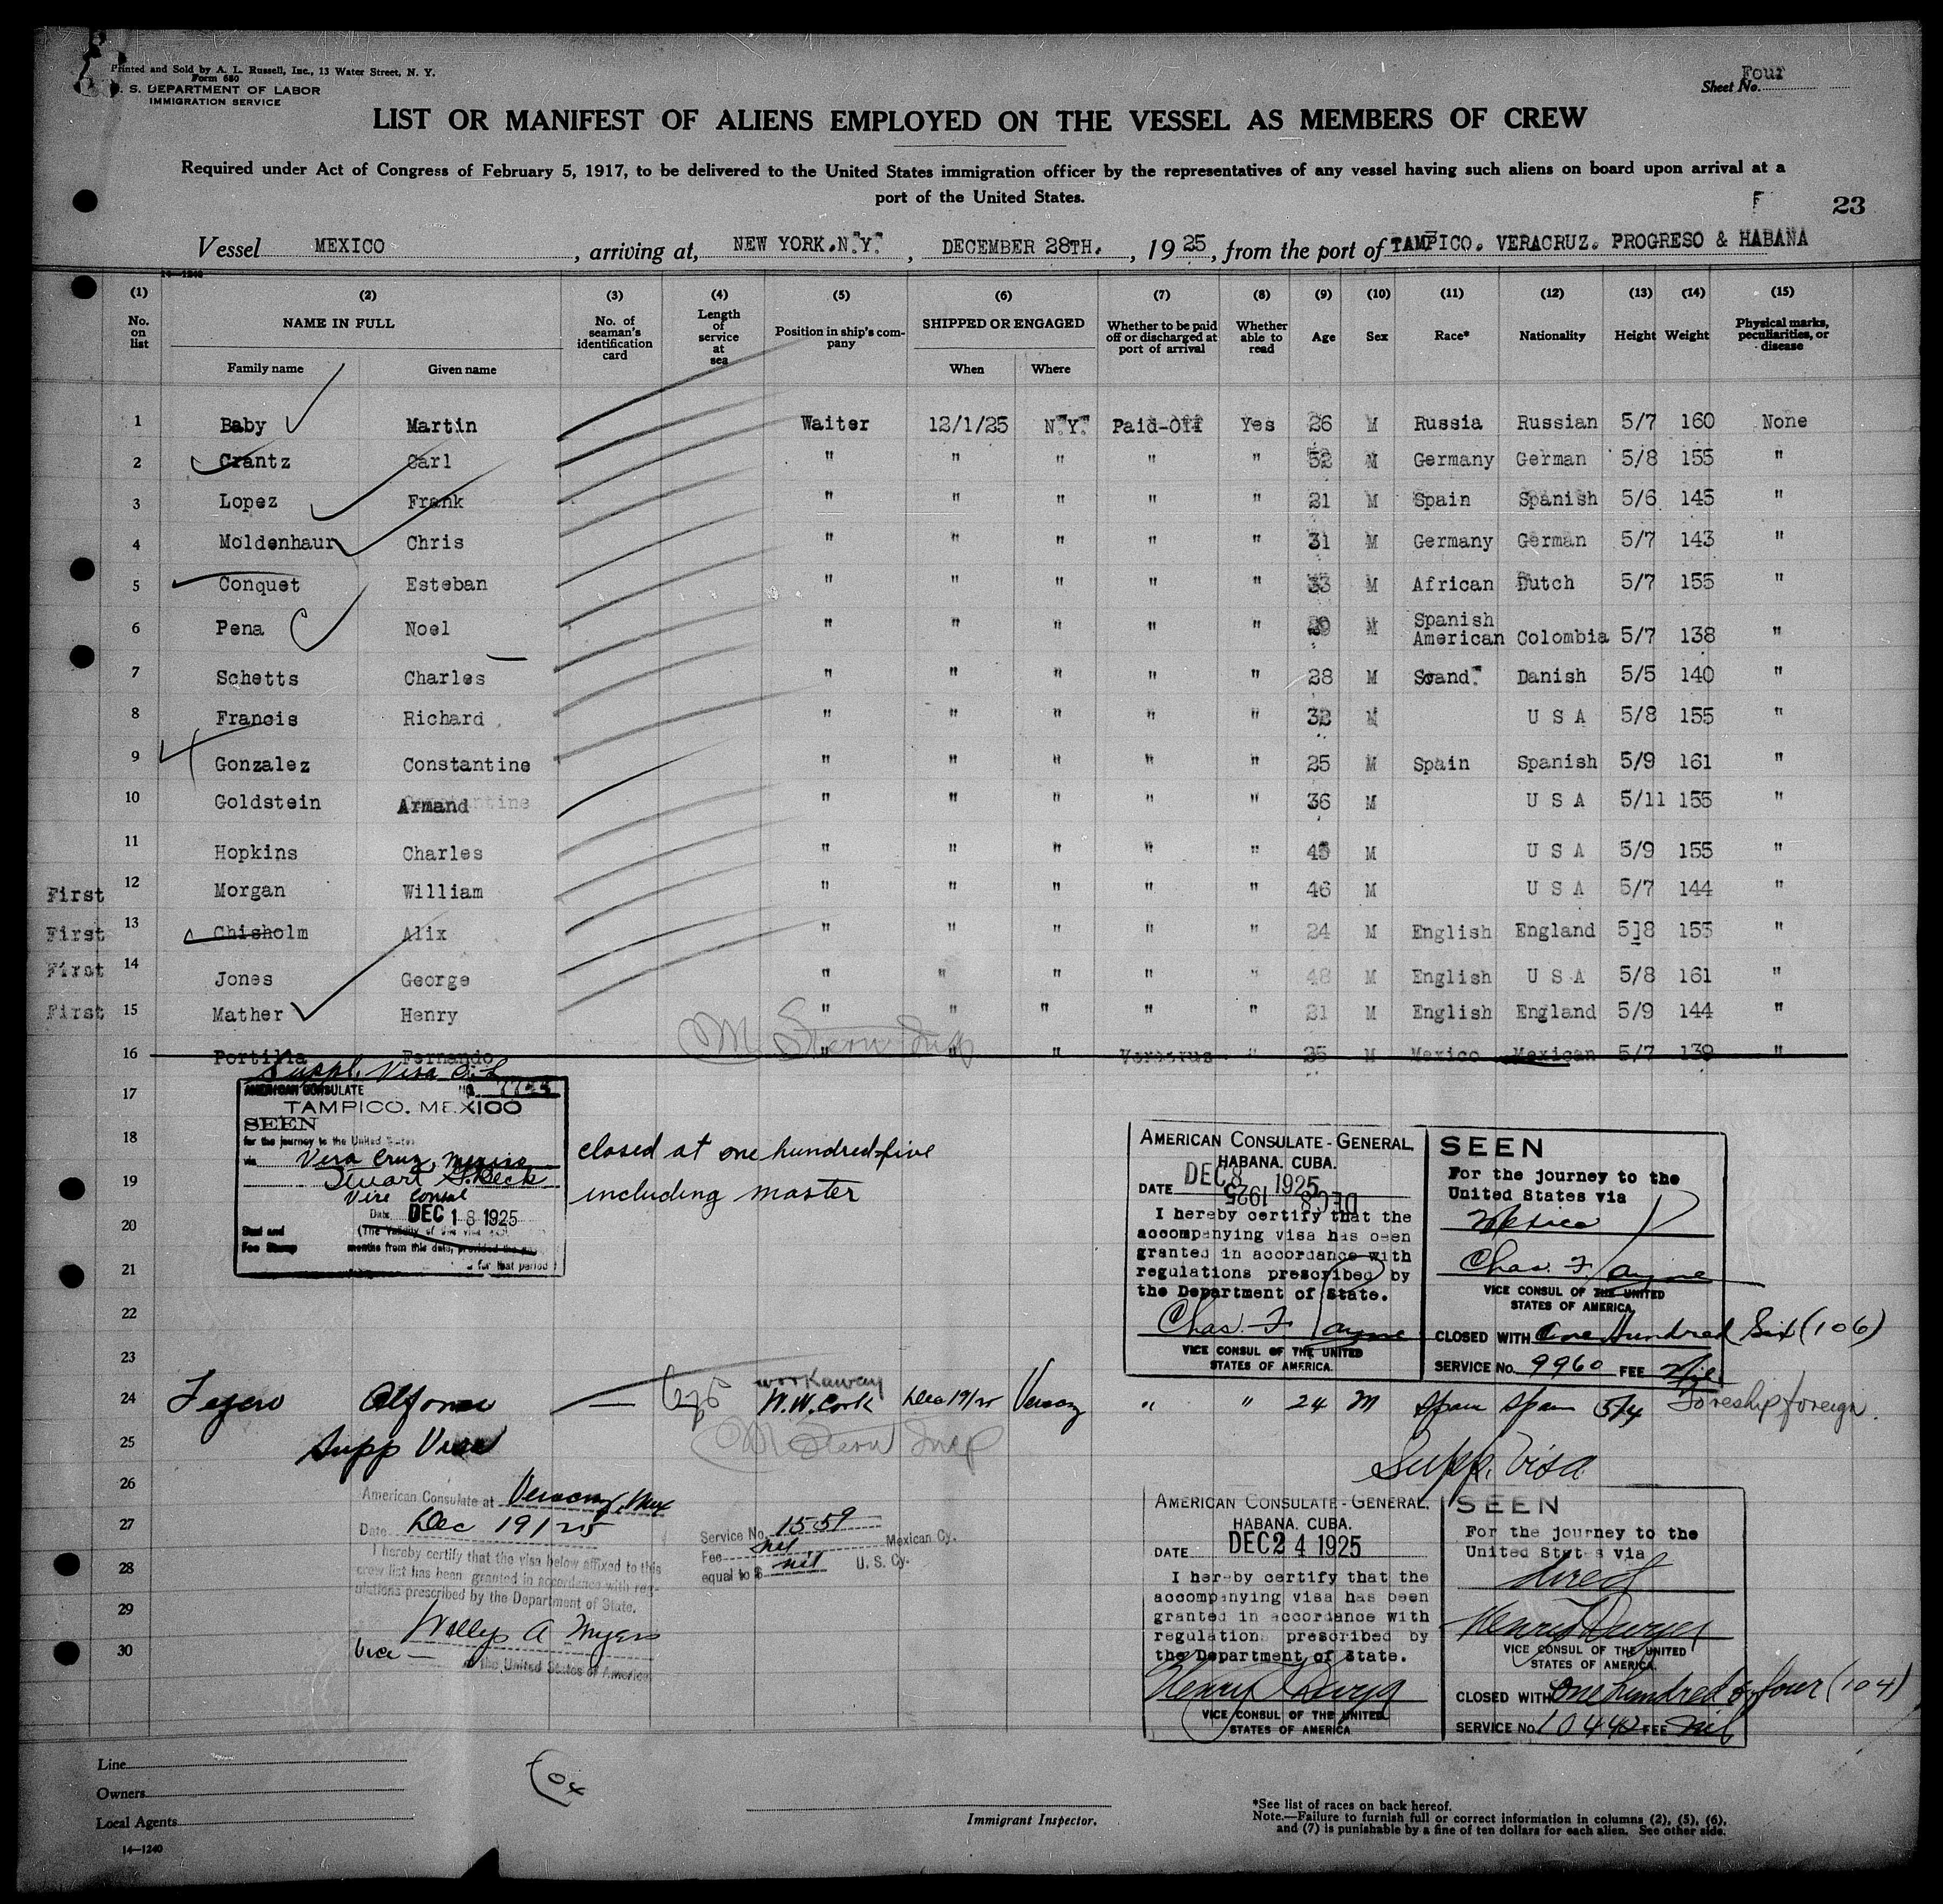 Printed and Sold by A. L. Russell, Inc., 13 Water Street, N. Y.
Form 680
S. DEPARTMENT OF LABOR
IMMIGRATION SERVICE
Sheet No. Four
LIST OR MANIFEST OF ALIENS EMPLOYED ON THE VESSEL AS MEMBERS OF CREW
Required under Act of Congress of February 5, 1917, to be delivered to the United States immigration officer by the representatives of any vessel having such aliens on board upon arrival at a
port of the United States.
F 23
Vessel MEXICO, arriving at, NEW YORK.N.Y., DECEMBER 28TH., 1925, from the port of TAMPICO. VERACRUZ. PROGRESO & HABANA
14—1240
(1) (2) (3) (4) (5) (6) (7) (8) (9) (10) (11) (12) (13) (14) (15)
No. on list
NAME IN FULL
Family name
Given name
No. of seaman's identification card
Length of service at sea
Position in ship's company
SHIPPED OR ENGAGED
When
Where
Whether to be paid off or discharged at port of arrival
Whether able to read
Age
Sex
Race*
Nationality
Height
Weight
Physical marks, peculiarities, or disease
1 Baby Martin Waiter 12/1/25 N.Y. Paid-Off Yes 26 M Russia Russian 5/7 160 None
2 Crantz Carl " " " " " 52 M Germany German 5/8 155 "
3 Lopez Frank " " " " " 21 M Spain Spanish 5/6 145 "
4 Moldenhaur Chris " " " " " 31 M Germany German 5/7 143 "
5 Conquet Esteban " " " " " 33 M African Dutch 5/7 155 "
6 Pena Noel " " " " " M Spanish American Colombia 5/7 138 "
7 Schetts Charles " " " " " 28 M Scand. Danish 5/5 140 "
8 Francis Richard " " " " " 32 M U S A 5/8 155 "
9 Gonzalez Constantine " " " " " 25 M Spain Spanish 5/9 161 "
10 Goldstein Armand " " " " " 36 M U S A 5/11 155 "
11 Hopkins Charles " " " " " 45 M U S A 5/9 155 "
First 12 Morgan William " " " " " 46 M U S A 5/7 144 "
First 13 Chisholm Alix " " " " " 24 M English England 5]8 155 "
First 14 Jones George " " " " " 48 M English U S A 5/8 161 "
First 15 Mather Henry " " " " " 21 M English England 5/9 144 "
M. Stern Insp
16 Portilla Fernando " " " Veracrus " 25 M Mexico Mexican 5/7 139 "
Suppl. Visa
17
AMERICAN CONSULATE No.
TAMPICO, MEXICO
SEEN
for the journey to the United States
via Vera Cruz, Mexico
Stuart
Vice Consul
Date DEC 18 1925
(The validity of
Seal and
Fee Stamp
months from this date, provided the
for that period
18
closed at one hundred five
including master
19
20
21
22
23
AMERICAN CONSULATE-GENERAL
HABANA. CUBA.
DATE DEC 8 1925
DEC 8 1925
I hereby certify that the
accompanying visa has been
granted in accordance with
regulations prescribed by
the Department of State.
Chas. F. Payne
VICE CONSUL OF THE UNITED
STATES OF AMERICA.
SEEN
For the journey to the
United States via
Mexico
Chas. F. Payne
VICE CONSUL OF THE UNITED
STATES OF AMERICA.
CLOSED WITH One Hundred Six (106)
SERVICE No. 9960 FEE Nil
24 Alfonso workaway Dec 19/25 " " 24 M Spain Spain 5/4 foreign.
25 Supp Visa
M Stern Insp
Supp. Visa
26
American Consulate at Veracruz, Mex
Date Dec 19/25
27
I hereby certify that the visa below affixed to this
crew list has been granted in accordance with reg-
ulations prescribed by the Department of State.
Willys A Myers
Vice
of the United States of America
Service No. 1559
Fee nil Mexican Cy.
equal to $ nil U. S. Cy.
28
29
30
AMERICAN CONSULATE-GENERAL
HABANA. CUBA.
DATE DEC 24 1925
I hereby certify that the
accompanying visa has been
granted in accordance with
regulations prescribed by
the Department of State.
Henry
VICE CONSUL OF THE UNITED
STATES OF AMERICA
SEEN
For the journey to the
United States via
direct
Henry
VICE CONSUL OF THE UNITED
STATES OF AMERICA.
CLOSED WITH One hundred & four (104)
SERVICE No. 10442 FEE nil
Line
Owners
Local Agents
14—1240
104
Immigrant Inspector.
*See list of races on back hereof.
Note.—Failure to furnish full or correct information in columns (2), (5), (6),
and (7) is punishable by a fine of ten dollars for each alien. See other side.